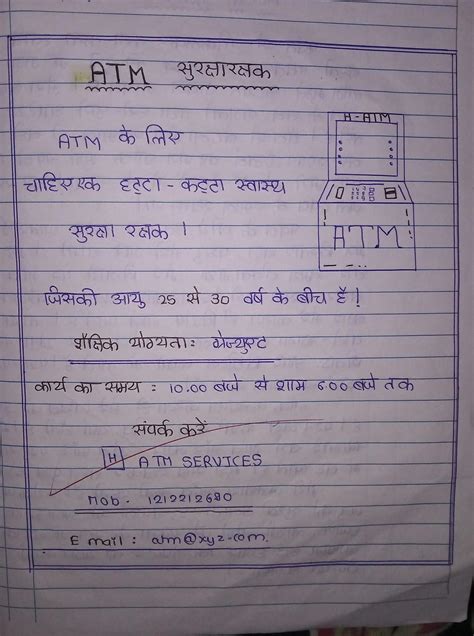 ATM सुरक्षारक्षक
A-ATM
ATM के लिए
चाहिए एक हट्टा - कट्टा स्वास्थ
ATM
सुरक्षा रक्षक ।
जिसकी आयु 25 से 30 वर्ष के बीच हैं !
शैक्षिक योग्यता: ग्रेज्युएट
कार्य का समय : 10.00 बजे से शाम 6:00 बजे तक
संपर्क करें
H ATM SERVICES
Mob. 1212212680
E mail : atm@xyz-com.